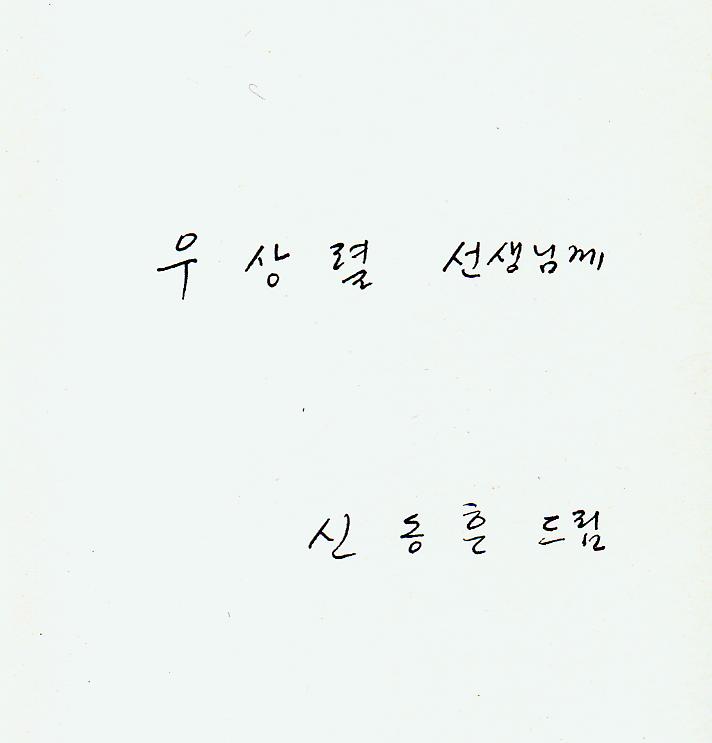 우 상 렬 선생님께
신 동 흔 드림